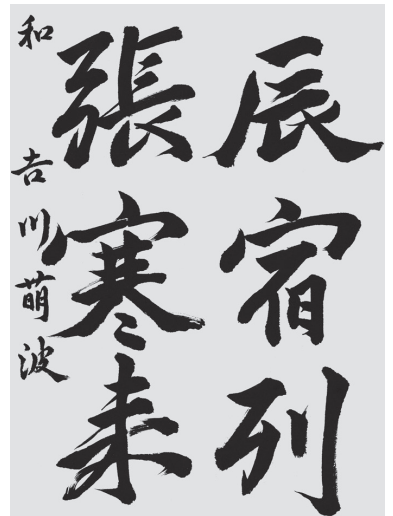 辰宿列
張寒来
和 吉川萌波